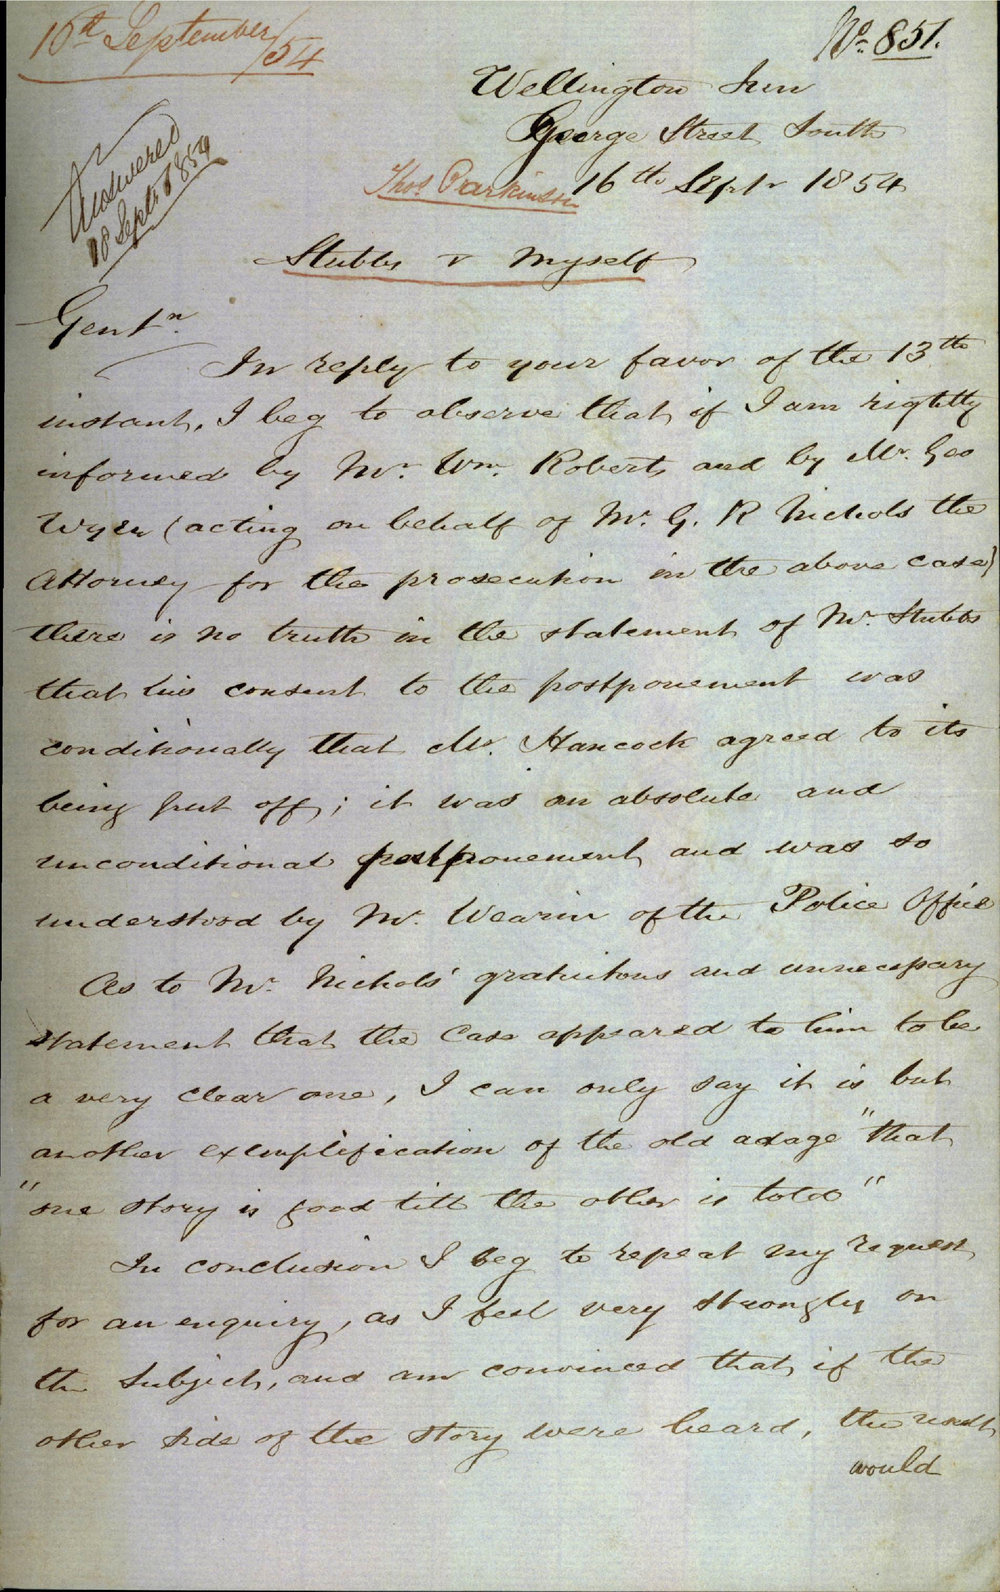 16th September/54
No. 851.
Wellington Inn
George Street South
Thos. Parkinson 16th Septr 1854
Answered
18 Septr 1854
Stubbs v Myself
Gentn.
In reply to your favor of the 13th
instant, I beg to observe that if I am rightly
informed by Mr. Wm. Roberts and by Mr. Geo
(acting on behalf of Mr. G. R Nichols the
Attorney for the prosecution in the above case)
there is no truth in the statement of Mr. Stubbs
that his consent to the postponement was
conditionally that Mr. Hancock agreed to its
being put off; it was an absolute and
unconditional postponement and was so
understood by Mr. Wearin of the Police Office
As to Mr. Nichols' gratuitous and unnecessary
statement that the Case appeared to him to be
a very clear one, I can only say it is but
another exemplification of the old adage "that
"one story is good till the other is told"
In conclusion I beg to repeat my request
for an enquiry, as I feel very strongly on
the Subject, and am convinced that if the
other side of the story were heard, the result
would